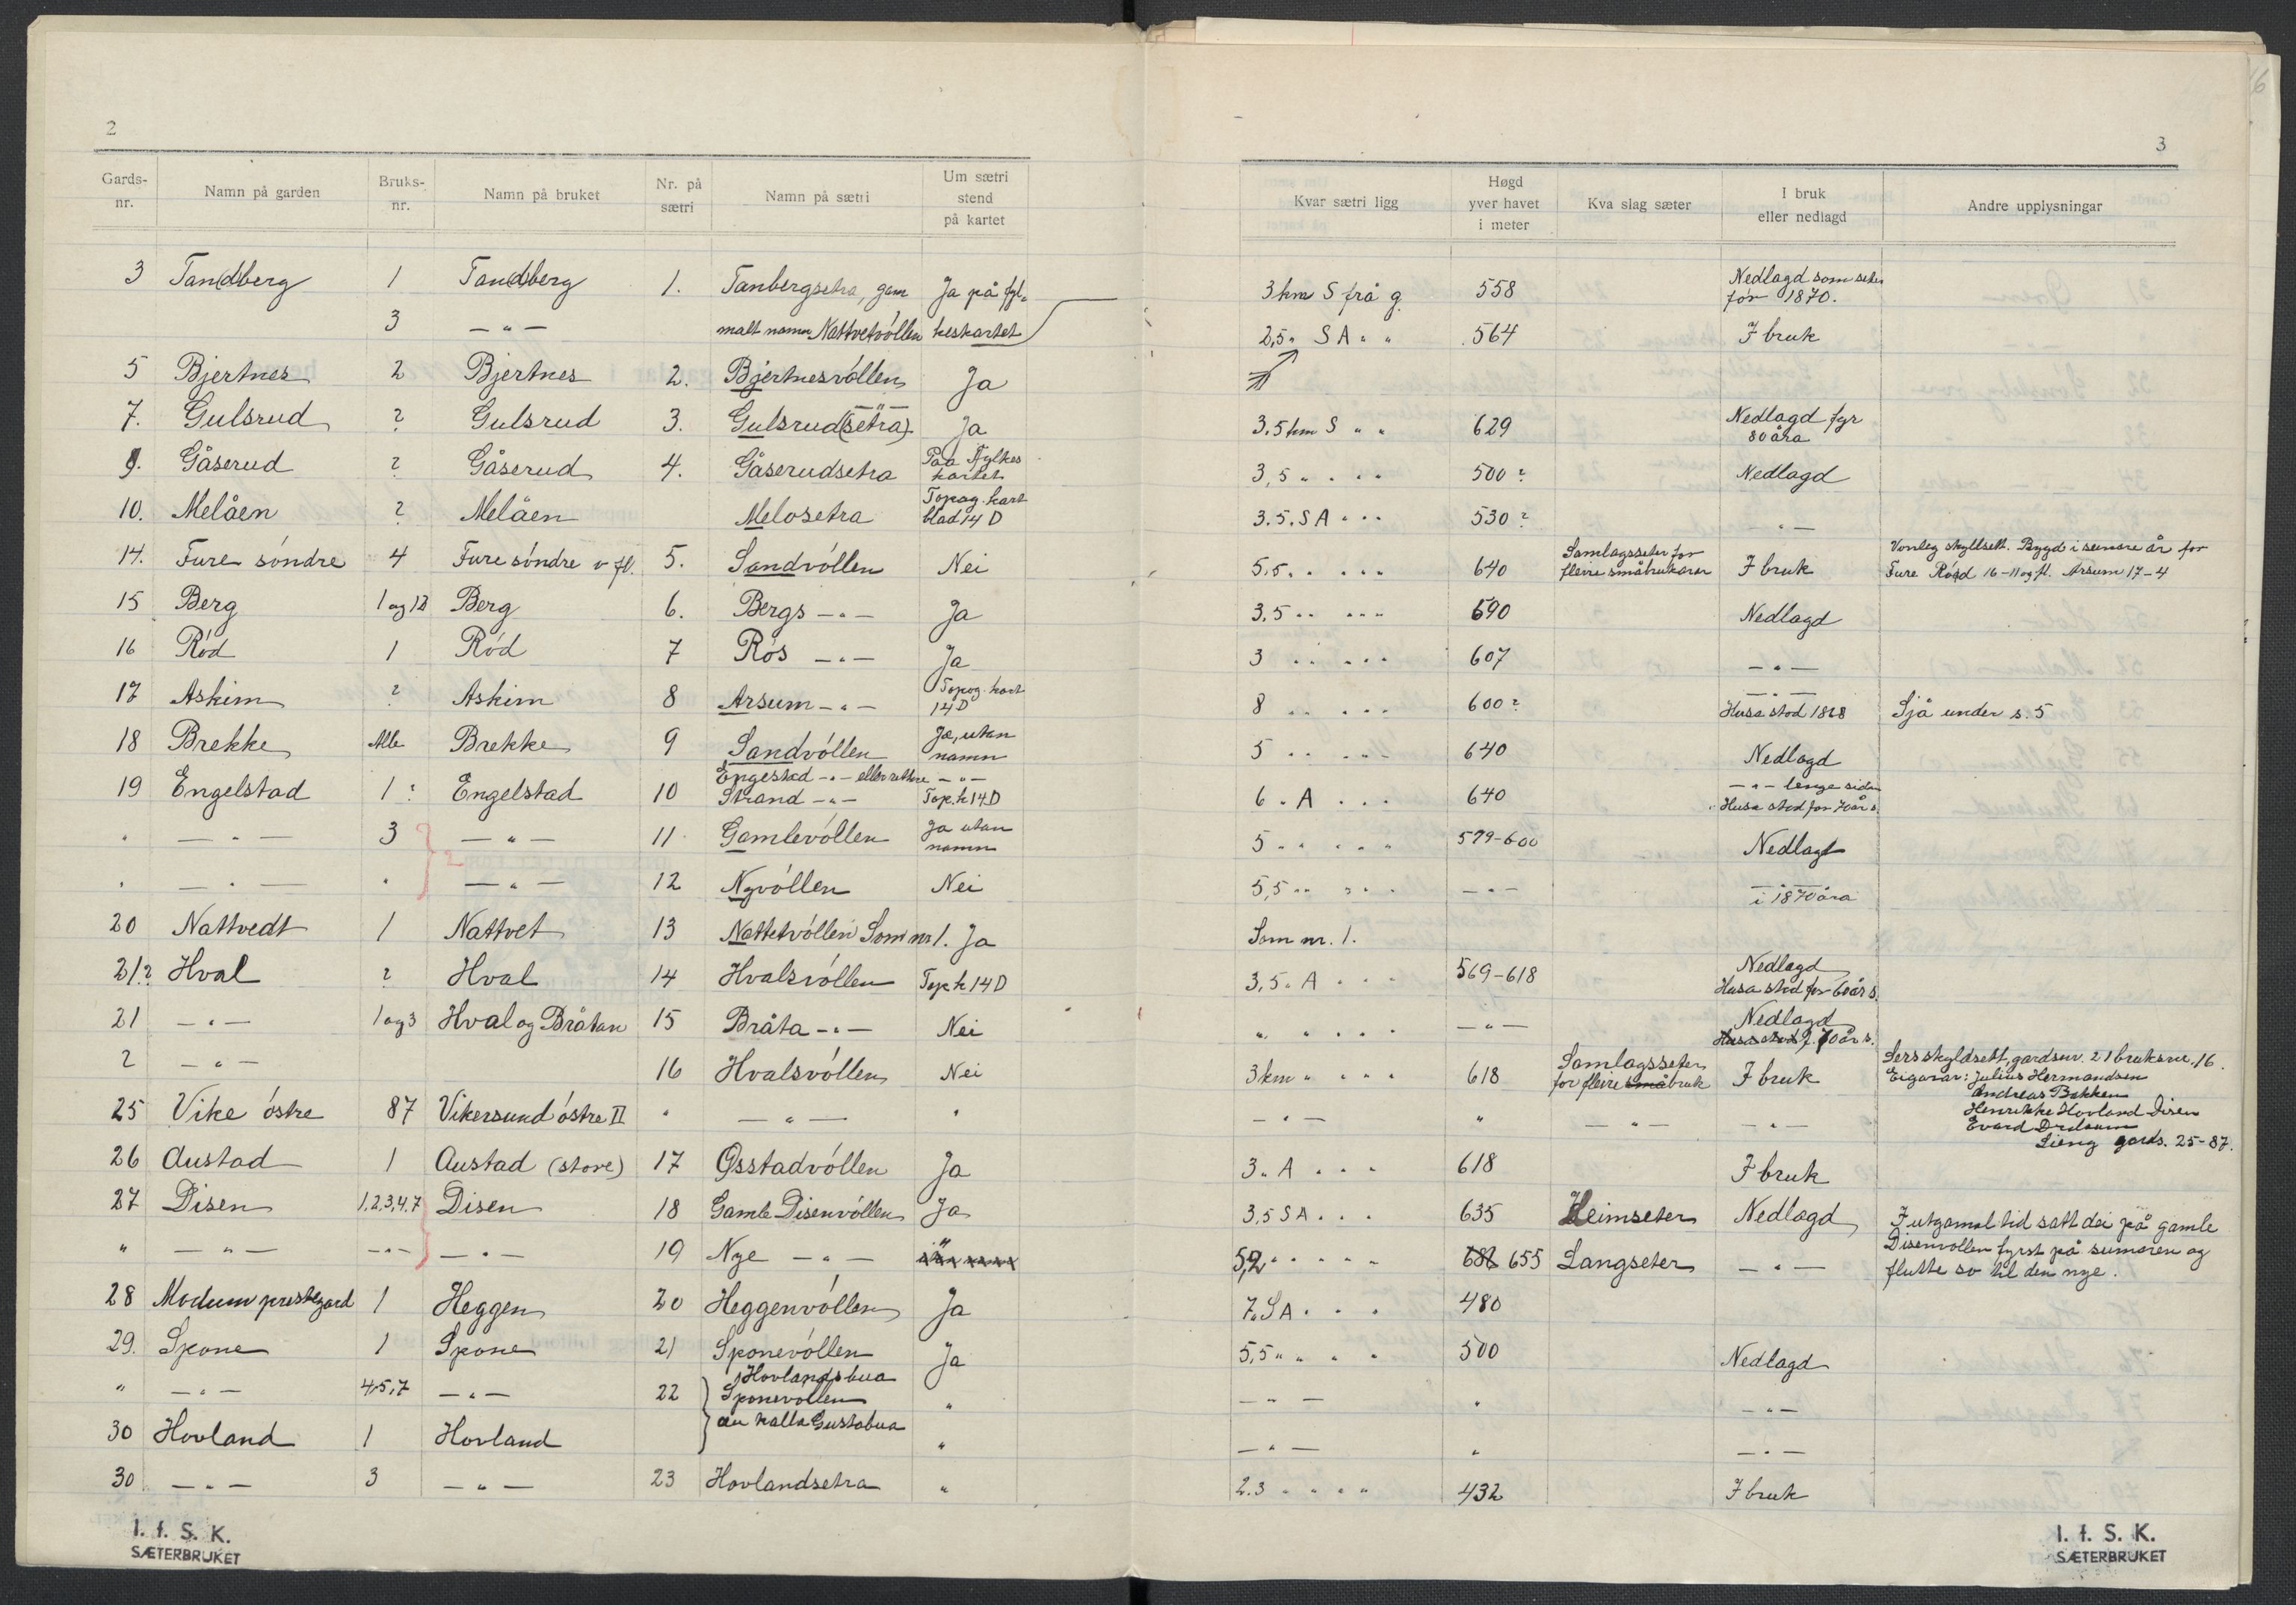 2
Gards-nr. Namn på garden Bruks-nr. Namn på bruket Nr. på sætri Namn på sætri Um sætri stend på kartet
3 Tan(d)berg 1 Tan(d)berg 1. Tanbergsetra, gam Ja på fyl-
3 — " — malt namn Nattvetvóllen keskartet
5 Bjertnes 2 Bjertnes 2. Bjertnesvóllen Ja
7. Gulsrud ? Gulsrud 3. Gulsrud(setra) — " — Ja
9. Gåserud ? Gåserud 4. Gåserudsetra Paa Fylkes kartet
10. Melåen ? Melåen Melosetra Topog. kart blad 14 D
14. Fure sóndre 4 Fure sóndre o fl. 5. Sandvóllen Nei
15 Berg 1 og 12 Berg 6. Bergs — " — Ja
16 Ród 1 Ród 7 Rós — " — Ja
17 Askim ? Askim 8 Arsum — " — Topog. kart 14 D
18 Brekke Alle Brekke 9 Sandvóllen Ja, utan namn
19 Engelstad 1 ? Engelstad 10 Engestad — " — eller rettere Strand — " — — " — Top. k 14 D
" — " — 3 — " — 11 Gamlevóllen Ja utan namn
" — " — " — " — 12 Nyvóllen Nei
2
20 Nattvedt 1 Nattvet 13 Nattetvóllen Som nr 1. Ja
21? Hval ? Hval 14 Hvalsvóllen Top. k 14 D
21 — " — 1 og 3 Hval og Bråtan 15 Bråta — " — Nei
? — " — 16 Hvalsvóllen Nei
25 Vike óstre 87 Vikersund óstre II " — " — "
26 Austad 1 Austad (store) 17 Ósstadvóllen Ja
27 Disen 1,2,3,4,7 Disen 18 Gamle Disenvóllen Ja
" — " — — " — — " — 19 Nye — " — "
28 Modum prestegard 1 Heggen 20 Heggenvóllen Ja
29. Spone 1 Spone 21 Sponevóllen Ja
" — " — 4,5,7 — " — 22 Hovlandsbua Sponevollen "
30 Hovland 1 Hovland au kalla Gustabua "
30 — " — 3 — " — 23 Hovlandsetra "
I. f. S. K.
SÆTERBRUKET
3
Kvar sætri ligg Høgd yver havet i meter Kva slag sæter I bruk eller nedlagd Andre upplysningar
3 km S frå g. 558 Nedlagd som seter for 1870.
2,5 " S A " " 564 I bruk
3.5 km S " " 629 Nedlagd fyr 80 åra
3,5 " " " " 500 ? Nedlagd
3.5. S A " " " 530 ? — " —
5,5 " " " " 640 Samlagsseter for fleire småbrukarar I bruk Vonleg skyllsett. Bygd i seinare år for Fure Ród 16-11 og fl. Arsum 17-4
3,5 " " " " 590 Nedlagd
3 " " " " " 607 — " —
8 " " " " 600 ? — " — Husa stod 1828 Sjå under s. 5
5 " " " " 640 Nedlagd
6 " A " " " 640 — " — lenge sidan Husa stod for 70 år s.
5 " " " " " 579-600 Nedlagt
5,5 " " " " " — " — — " — i 1870 åra
Som nr. 1.
3,5 " A " " " 569-618 Nedlagd Husa stod for 60 år s.
" " " " " — " — Nedlagd Husa stod f. 70 år s.
3 km " " " " 618 Samlagsseter for fleire småbruk I bruk Sers skyldsett, gardsnr. 21 bruksnr. 16.
Eigarar: Julius Hermandsen
Andreas Bakken
Henrikke Hovland Disen
Evard
Lieng gards. 25-87.
— " — " — " — — " —
3 " A " " " 618 I bruk
3,5 S A " " " 635 Heimseter Nedlagd I utgamal tid satt dei på gamle
5,2 " " " " " 655 Langseter — " — Disenvollen fyrst på sumaren og
flutte so til den nye.
7 " S A " " " 480
5,5 " " " " 500 Nedlagd
— " — " — " —
— " — " — " —
2.3 " " " " 432 I bruk
I. f. S. K.
SÆTERBRUKET